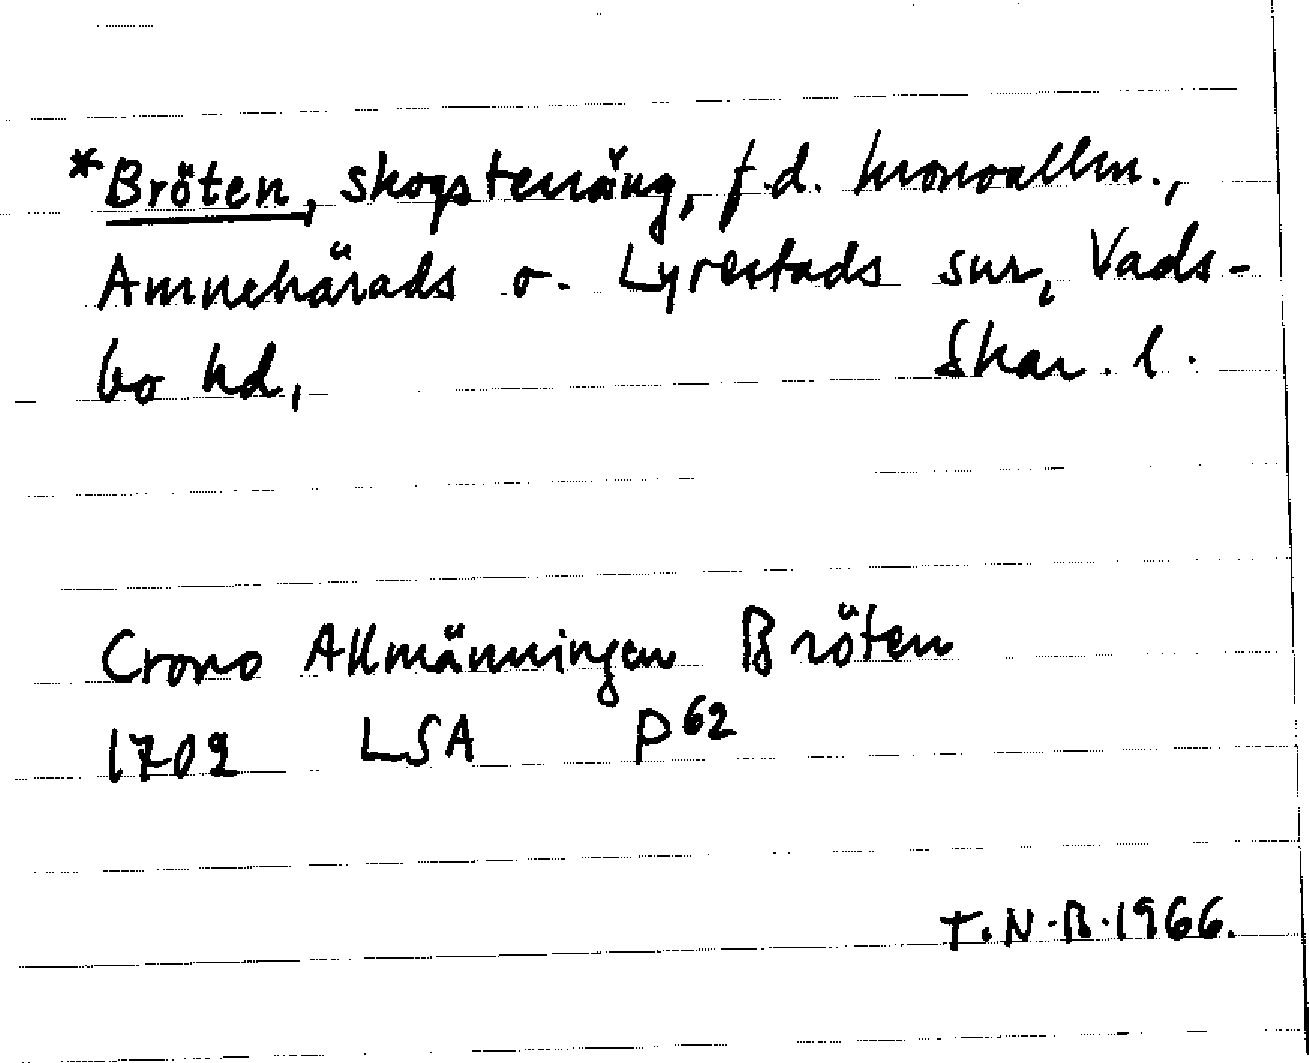 *Bröten, skogsterräng, f.d. kronoallm.,
Amnehärads o. Lyrestads snr, Vads-
bo hd, Skar. l.
Crono Allmänningen Bröten
1702 LSA P 62
T.N.B. 1966.